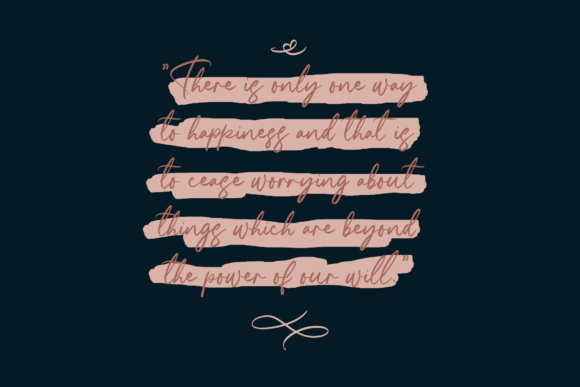 "There is only one way
to happiness and that is
to cease worrying about
things which are beyond
the power of our will."